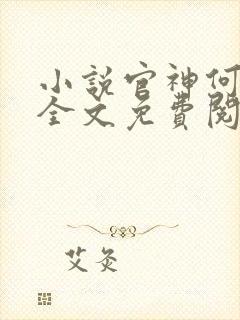 小說官神何
全文免費閱
艾灸